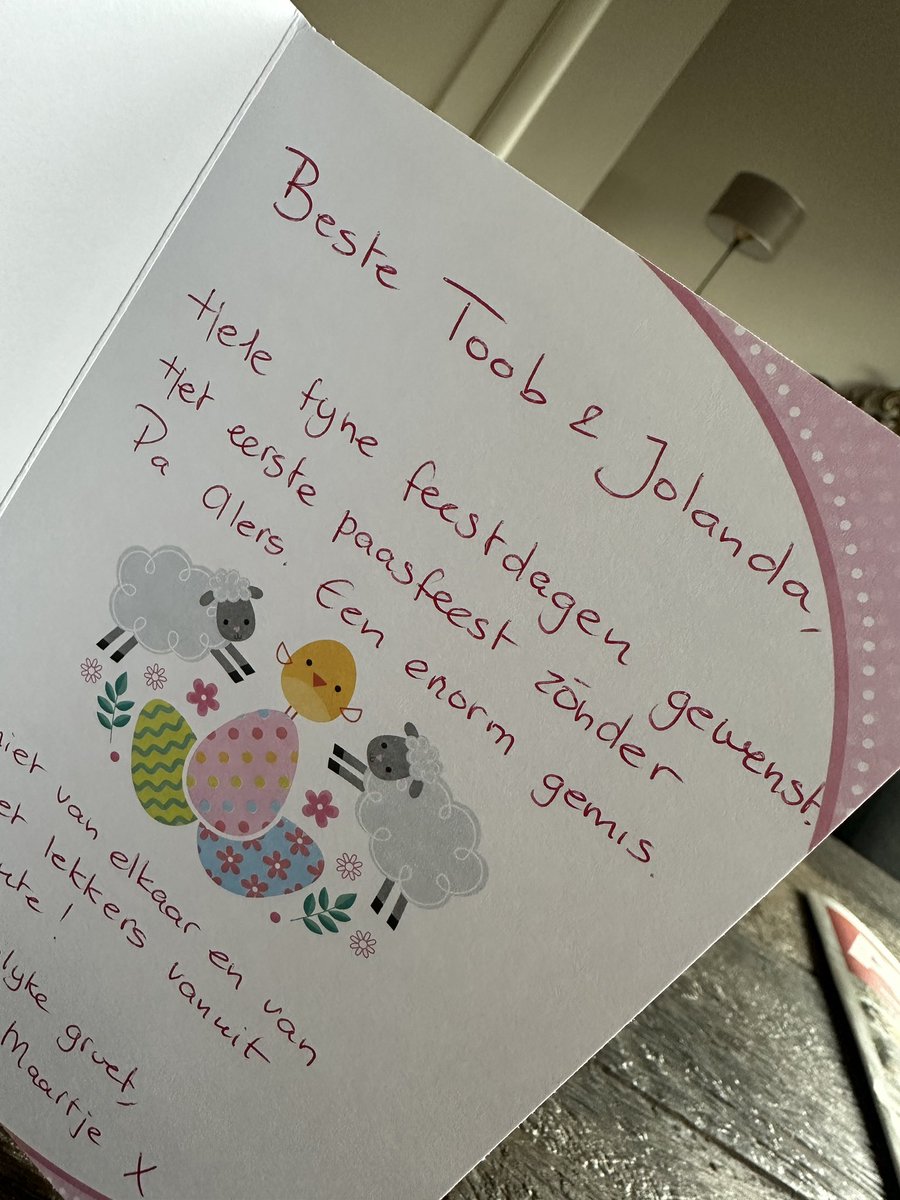 Beste Toob & Jolanda,
Hele fyne feestdagen gewenst!
Het eerste paasfeest zónder
Pa Alers. Een enorm gemis.
niet van elkaar en van
et lekkers vanuit
ute!
lyke groet,
Maartje X